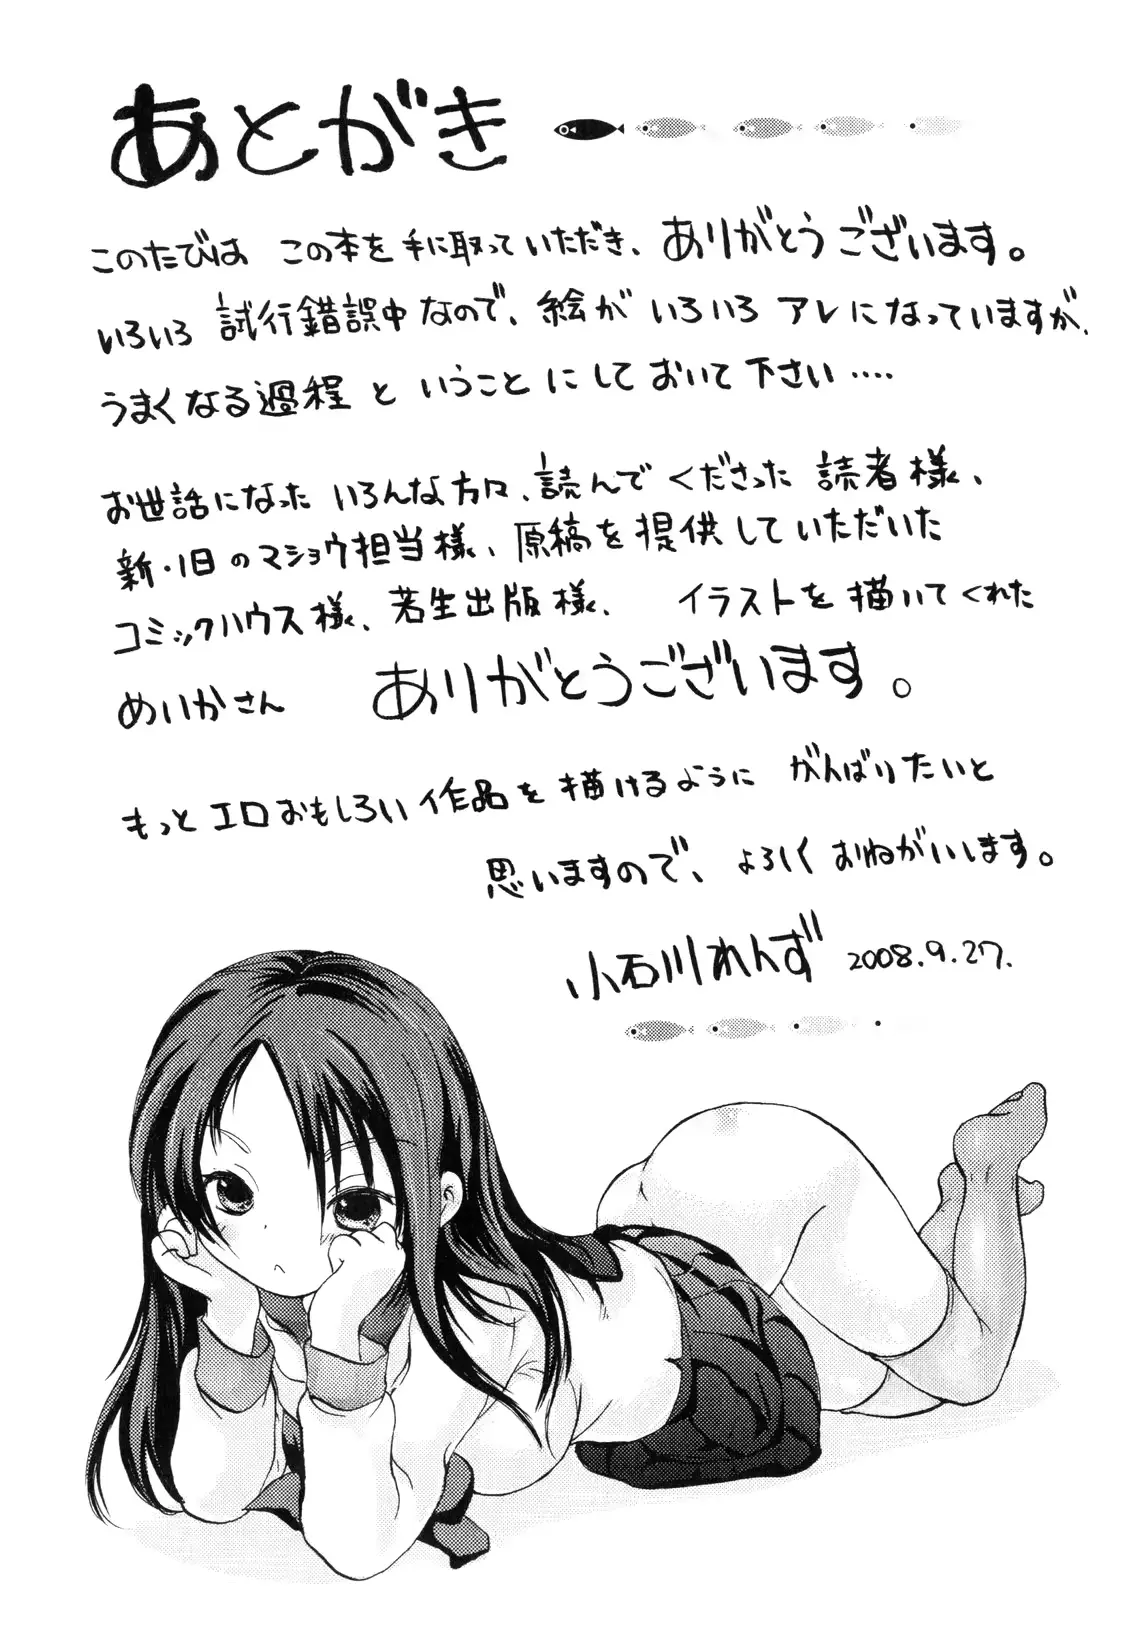 あとがき
このたびは この本を手に取っていただき、ありがとうございます。
いろいろ試行錯誤中なので、絵が いろいろ アレになっていますが、
うまくなる過程 と いうこと にしておいて下さい‥‥
お世話になった いろんな方々、読んで くださった 読者様、
新・旧のマショウ担当様、原稿を提供していただいた
コミックハウス様、若生出版様、 イラストを描いてくれた
めいかさん ありがとうございます。
もっとエロおもしろい作品を描けるように がんばりたいと
思いますので、よろしくおねがいします。
小石川れんず 2008.9.27.